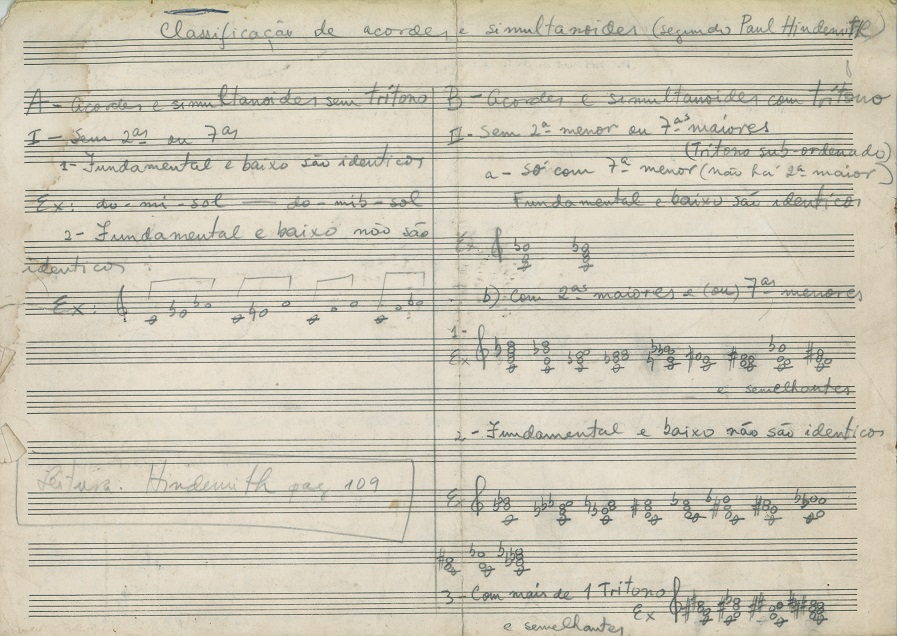 Classificação de acordes e simultanoides (segundo Paul Hindemith)
A - Acordes e simultanoides sem trítono
I - Sem 2as ou 7as
1 - Fundamental e baixo são identicos
Ex: do - mi - sol — do - mib - sol
2 - Fundamental e baixo não são
identicos :
Ex:
Leitura. Hindemith pag 109
B - Acordes e simultanoides com trítono
II - Sem 2a menor ou 7as maiores
(Trítono sub-ordenado)
a - Só com 7a menor (não há 2a maior)
Fundamental e baixo são identicos
Ex
b) Com 2as maiores e (ou) 7as menores
1-
Ex
e semelhantes
2 - Fundamental e baixo não são identicos
Ex
3 - Com mais de 1 Trítono
Ex
e semelhantes